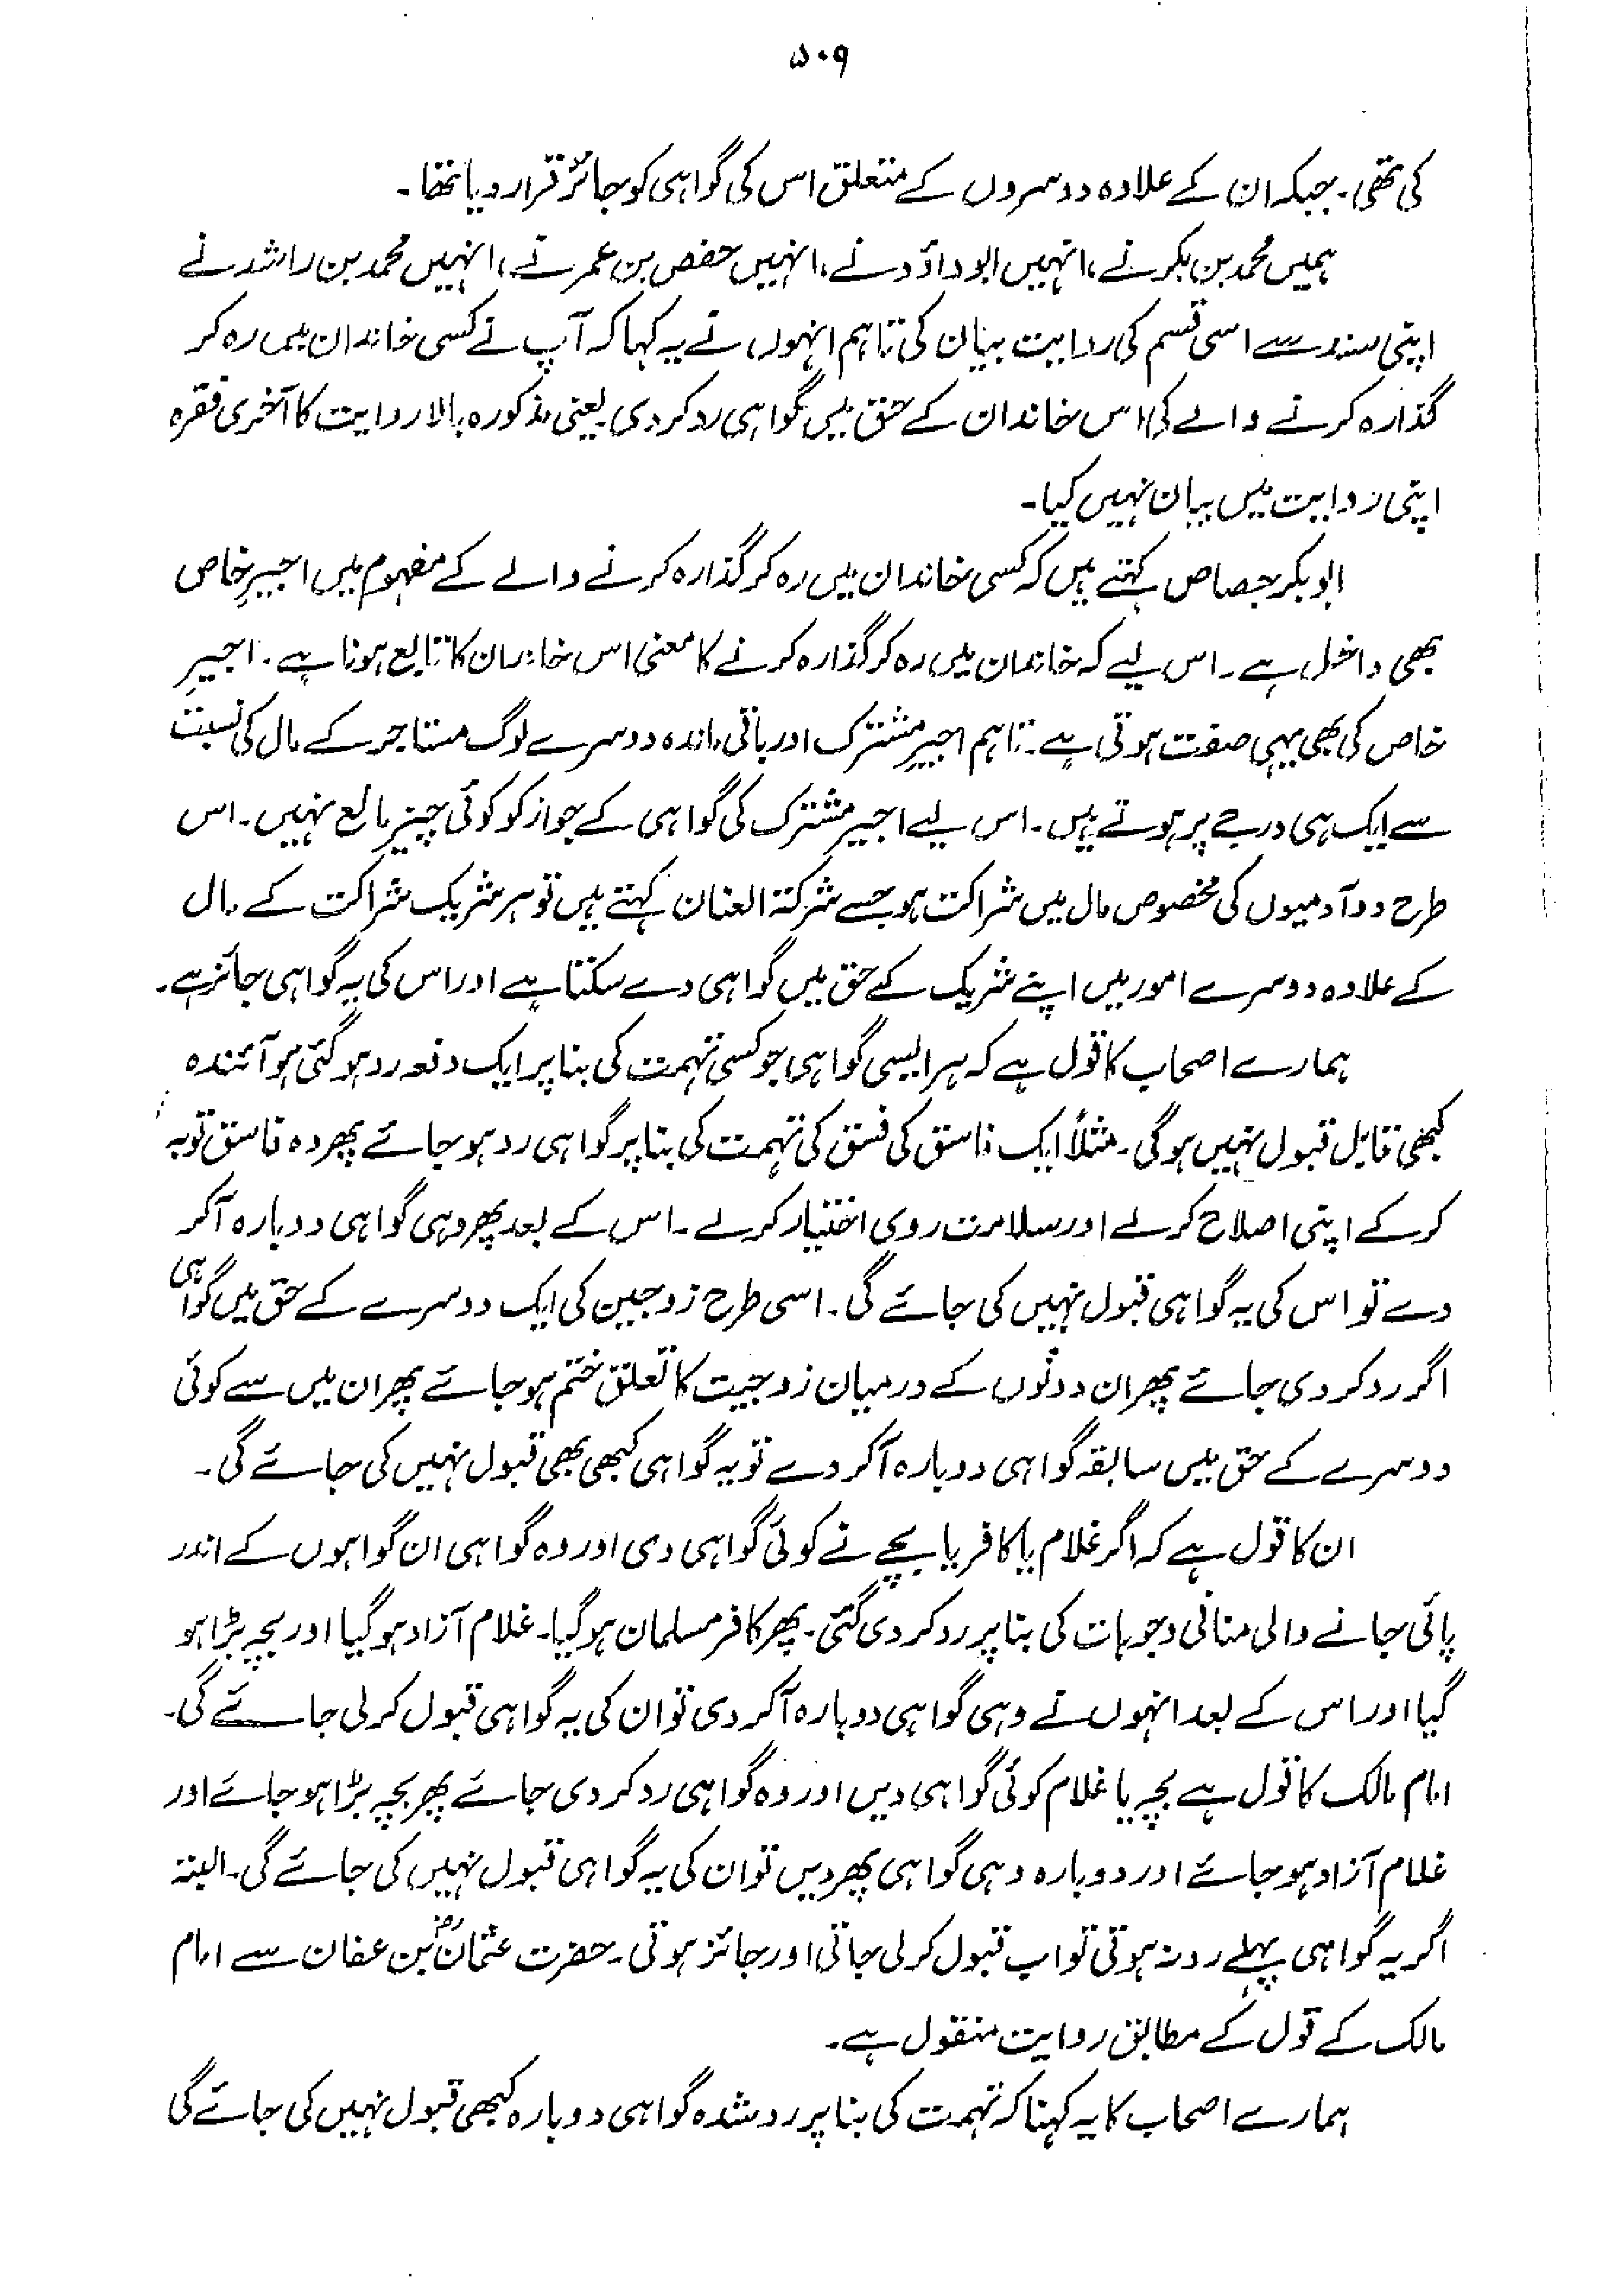 ۵۰۹
کی تھی۔ جبکہ ان کے علاوہ دوسروں کے متعلق اس کی گواہی کو جائز قرار دیا تھا۔
ہمیں محمد بن بکر نے، انہیں ابو داؤد نے، انہیں حفص بن عمر نے، انہیں محمد بن راشد نے
اپنی سند سے اسی قسم کی روایت بیان کی تاہم انہوں نے یہ کہا کہ آپ نے کسی خاندان میں رہ کر
گذارہ کرنے والے کی اس خاندان کے حق میں گواہی رد کر دی یعنی مذکورہ بالا روایت کا آخری فقرہ
اپنی روایت میں بیان نہیں کیا۔
ابو بکر جصاص کہتے ہیں کہ کسی خاندان میں رہ کر گذارہ کرنے والے کے مفہوم میں اجیرِ خاص
بھی داخل ہے۔ اس لیے کہ خاندان میں رہ کر گذارہ کرنے کا معنی اس خاندان کا تابع ہونا ہے۔ اجیرِ
خاص کی بھی یہی صفت ہوتی ہے۔ تاہم اجیرِ مشترک اور باقی ماندہ دوسرے لوگ مستاجر کے مال کی نسبت
سے ایک ہی درجے پر ہوتے ہیں۔ اس لیے اجیر مشترک کی گواہی کے جواز کو کوئی چیز مانع نہیں۔ اس
طرح دو آدمیوں کی مخصوص مال میں شراکت ہو جسے شرکۃ العنان کہتے ہیں تو ہر شریک شراکت کے مال
کے علاوہ دوسرے امور میں اپنے شریک کے حق میں گواہی دے سکتا ہے اور اس کی یہ گواہی جائز ہے۔
ہمارے اصحاب کا قول ہے کہ ہر ایسی گواہی جو کسی تہمت کی بنا پر ایک دفعہ رد ہو گئی ہو آئندہ
کبھی قابل قبول نہیں ہوگی۔ مثلاً ایک فاسق کی فسق کی تہمت کی بنا پر گواہی رد ہو جائے پھر وہ فاسق توبہ
کر کے اپنی اصلاح کر لے اور سلامت روی اختیار کر لے۔ اس کے بعد پھر وہی گواہی دوبارہ آ کر
دے تو اس کی یہ گواہی قبول نہیں کی جائے گی۔ اسی طرح زوجین کی ایک دوسرے کے حق میں گواہی
اگر رد کر دی جائے پھر ان دونوں کے درمیان زوجیت کا تعلق ختم ہو جائے پھر ان میں سے کوئی
دوسرے کے حق میں سابقہ گواہی دوبارہ آ کر دے تو یہ گواہی کبھی بھی قبول نہیں کی جائے گی۔
ان کا قول ہے کہ اگر غلام یا کافر یا بچے نے کوئی گواہی دی اور وہ گواہی ان گواہوں کے اندر
پائی جانے والی منافی وجوہات کی بنا پر رد کر دی گئی۔ پھر کافر مسلمان ہو گیا۔ غلام آزاد ہو گیا اور بچہ بڑا ہو
گیا اور اس کے بعد انہوں نے وہی گواہی دوبارہ آ کر دی تو ان کی یہ گواہی قبول کر لی جائے گی۔
امام مالک کا قول ہے بچہ یا غلام کوئی گواہی دیں اور وہ گواہی رد کر دی جائے پھر بچہ بڑا ہو جائے اور
غلام آزاد ہو جائے اور دوبارہ وہی گواہی پھر دیں تو ان کی یہ گواہی قبول نہیں کی جائے گی۔ البتہ
اگر یہ گواہی پہلے رد نہ ہوتی تو اب قبول کر لی جاتی اور جائز ہوتی۔ حضرت عثمانؓ بن عفان سے امام
مالک کے قول کے مطابق روایت منقول ہے۔
ہمارے اصحاب کا یہ کہنا کہ تہمت کی بنا پر رد شدہ گواہی دوبارہ کبھی قبول نہیں کی جائے گی